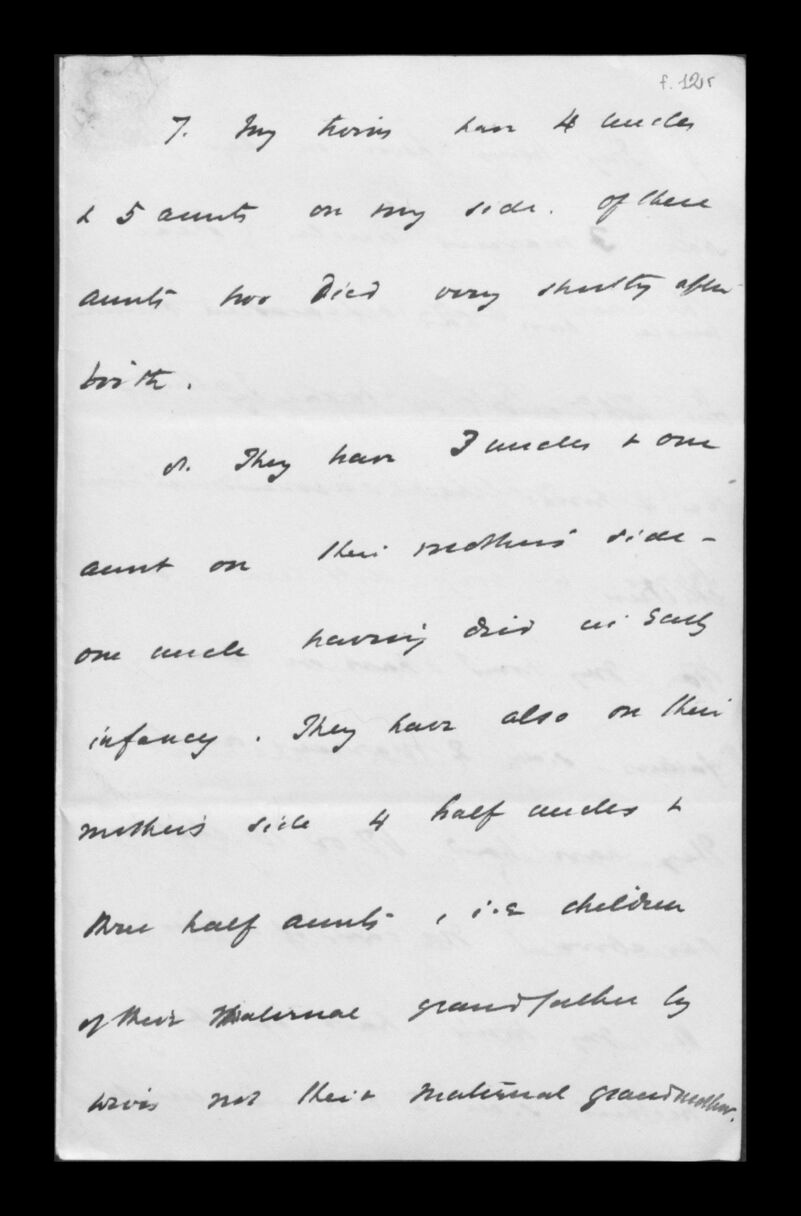 f. 12r
7. My twins have 4 uncles
& 5 aunts on my side. Of these
aunts two died very shortly after
birth.
8. They have 3 uncles & one
aunt on their mother's side -
one uncle having died in early
infancy. They have also on their
mother's side 4 half uncles &
three half aunts, i.e. children
of their maternal grandfather by
wives not their maternal grandmother.